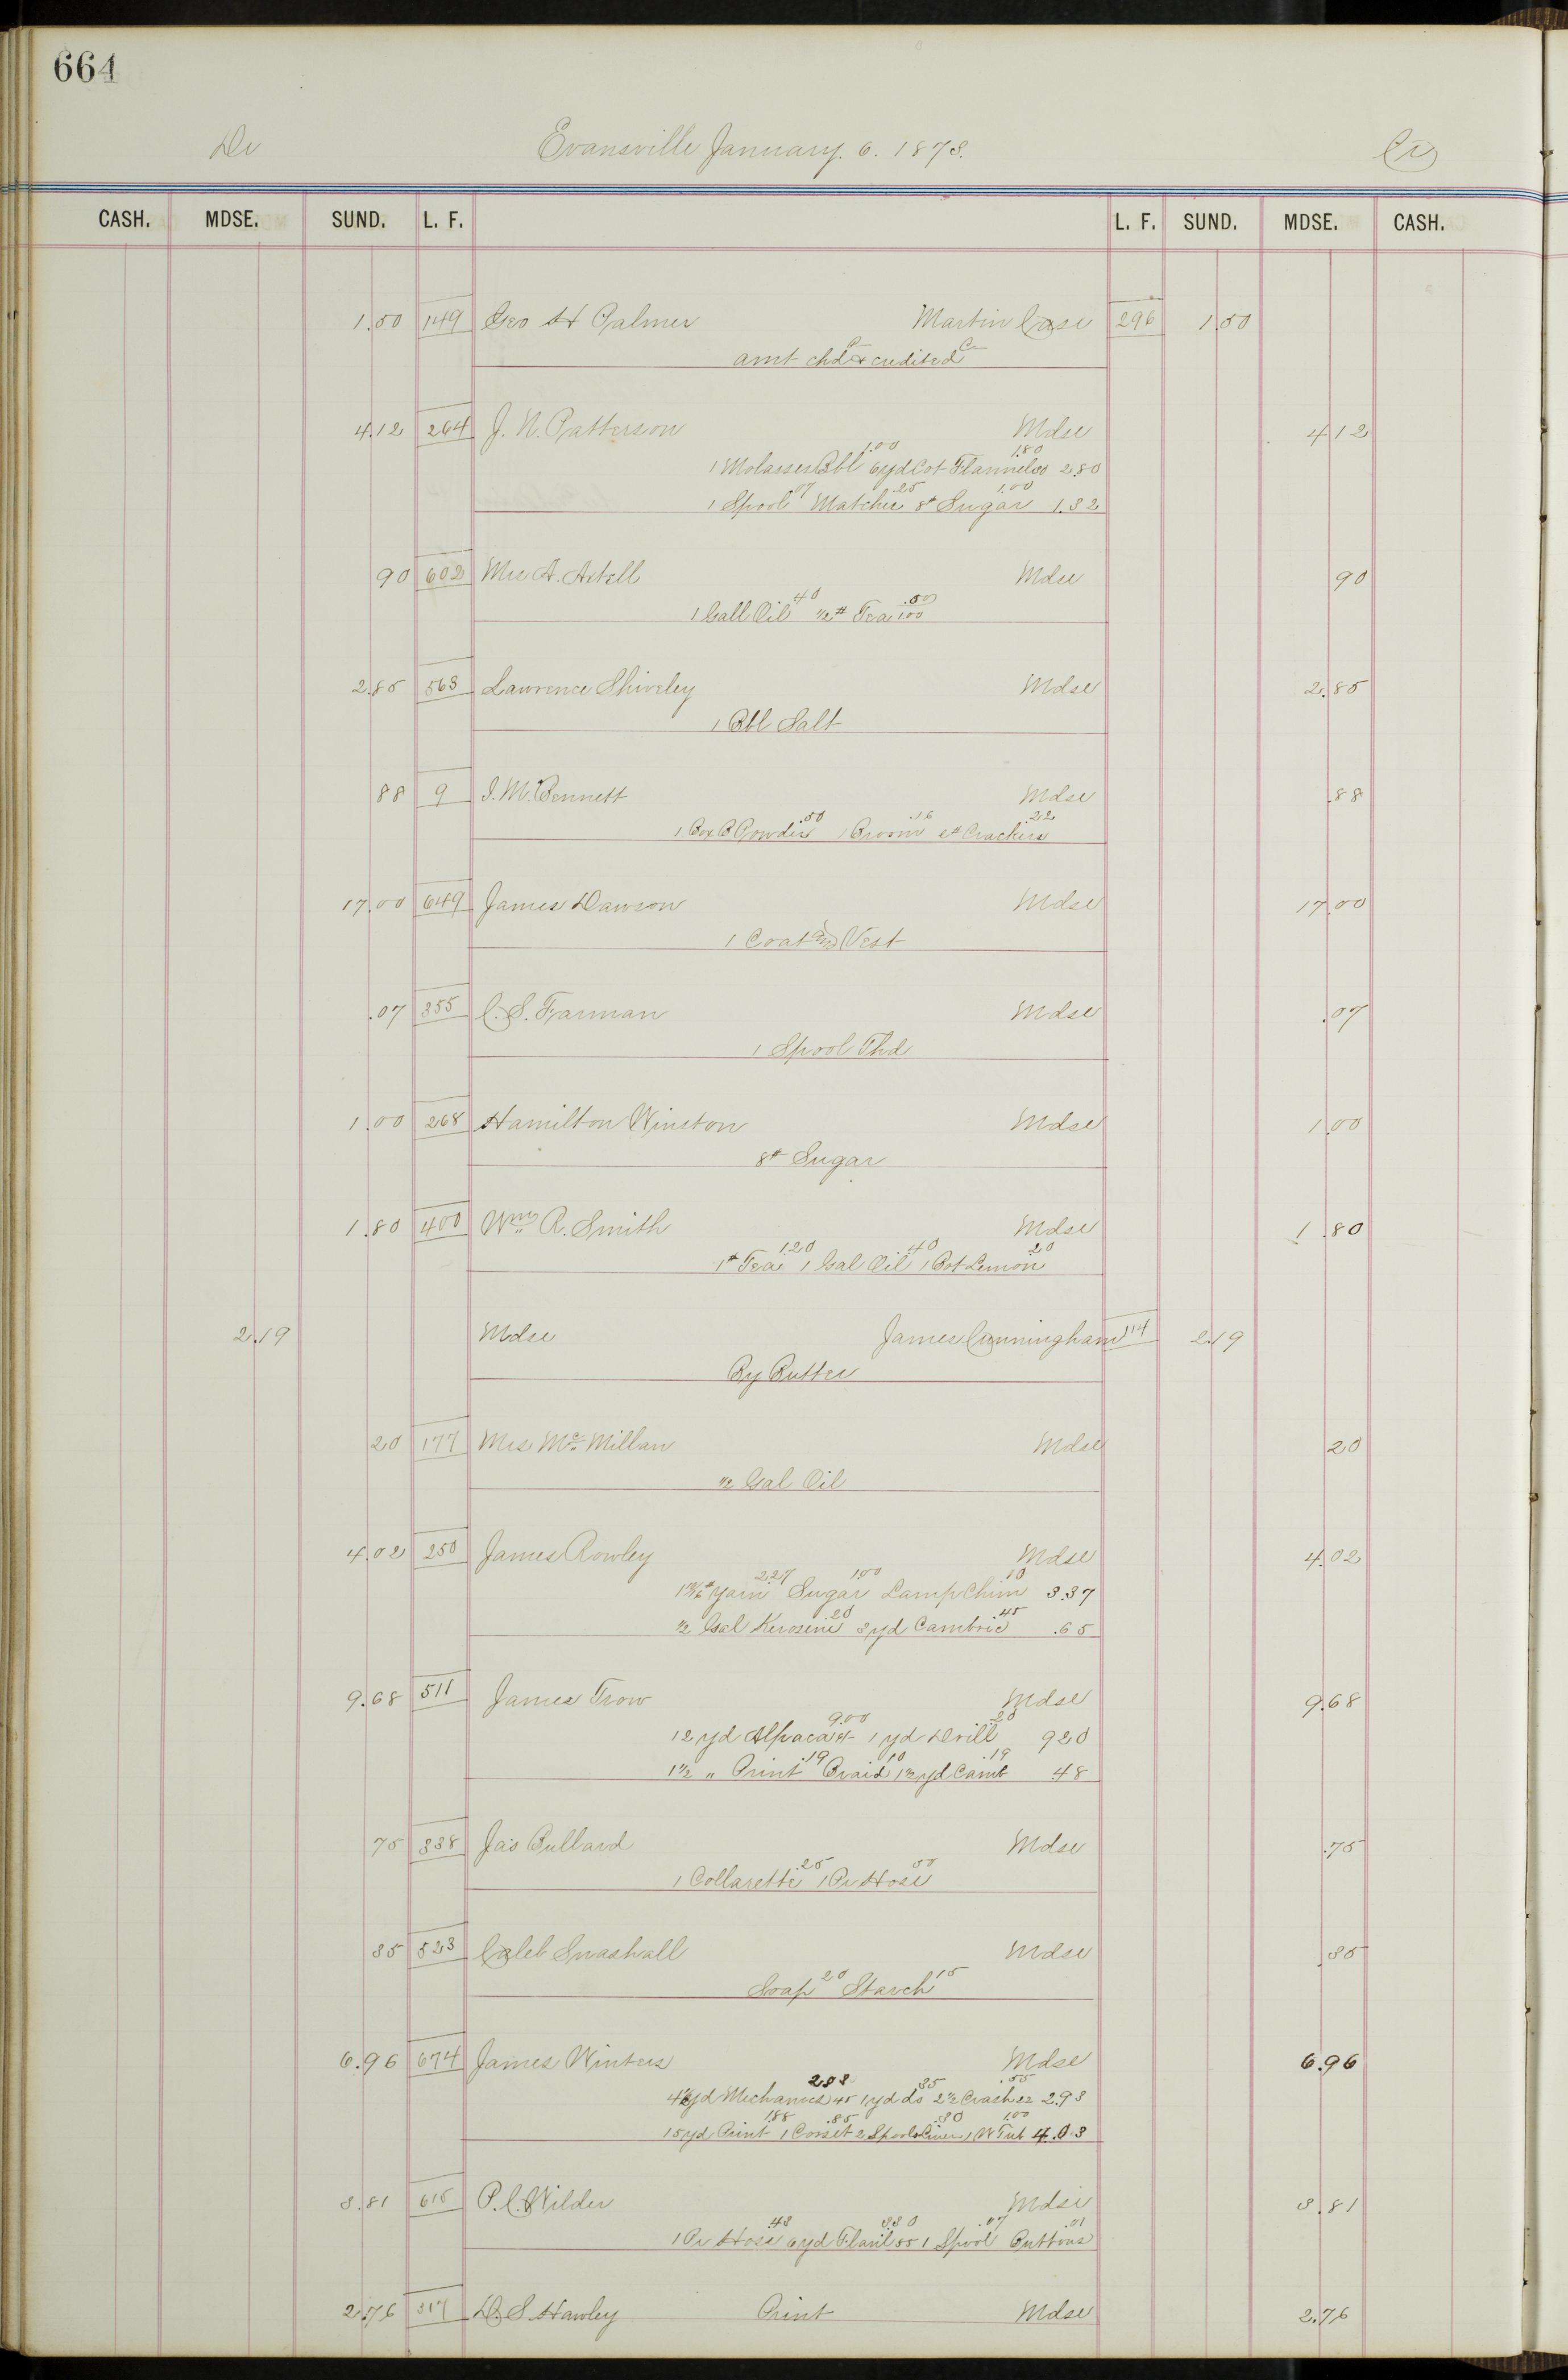 664
Dr Evansville January. 6. 1873. Cr
CASH. MDSE. SUND. L. F. L. F. SUND. MDSE. CASH.
1.50 149 Geo H Palmer Martin Case 296 1.50
amt chd & credited
4.12 264 J. N. Patterson Mdse 4.12
1 Molasses Bbl 1.00 6yd Cot Flannel 30 1.80 2.80
1 Spool 07 Matches .25 8# Sugar 1.00 1.32
90 602 Mrs A. Axtell Mdse 90
1 Gall Oil 40 1/2# Tea 1.00 .50
2.85 563 Lawrence Shiveley Mdse 2.85
1 Bbl Salt
88 9 I. M. Bennett Mdse .88
1 Box B Powder .50 1 Broom .16 2# Crackers .22
17.00 649 James Dawson Mdse 17.00
1 Coat and Vest
.07 355 C. S. Farman Mdse .07
1 Spool Thd
1.00 268 Hamilton Winston Mdse 1.00
8# Sugar
1.80 400 Wm R. Smith Mdse 1.80
1# Tea 1.20 1 Gal Oil .40 1 Bot Lemon 20
2.19 Mdse James Cunningham 114 2.19
By Butter
20 177 Mrs Mc Millan Mdse 20
1/2 Gal Oil
4.02 250 James Rowley Mdse 4.02
Yarn 2.27 Sugar 1.00 Lamp Chim 10 3.37
1/2 Gal Kerosine 20 3yd Cambric .45 .65
9.68 511 James Trow Mdse 9.68
12 yd Alpaca 9.00 1 yd Drill .20 9 20
1 1/2 " Print .19 Braid 10 1 1/2 yd Camb .19 .48
75 338 Jas Bullard Mdse .75
1 Collarette .25 1 Pr Hose 50
35 523 Caleb Snashall Mdse .35
Soap 20 Starch 15
6.96 674 James Winters Mdse 6.96
yd Mechanics 45 1 yd do 35 2 1/2 Crash 22 .55 2.93
15yd Print 1.88 1 Corset .85 2 Spools Linen .30 1 W Tub 1.00 4.03
3.81 615 P. C. Wilder Mdse 3.81
1 Pr Hose .43 6yd Flanl 55 3.30 1 Spool .07 Buttons .01
2.76 317 D. S. Hawley Print Mdse 2.76